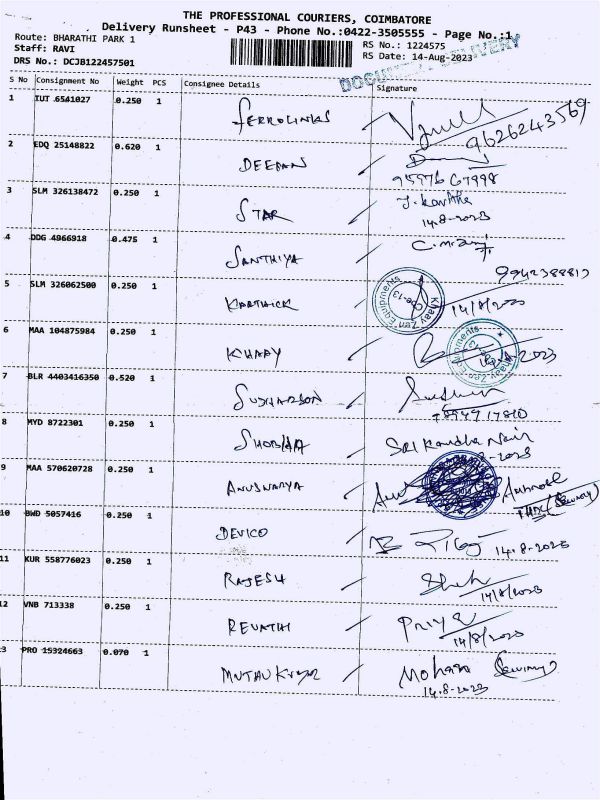 THE PROFESSIONAL COURIERS, COIMBATORE
Delivery Runsheet - P43 - Phone No.:0422-3505555 - Page No.:1
Route: BHARATHI PARK 1
RS No.: 1224575
Staff: RAVI
RS Date: 14-Aug-2023
DRS No.: DCJB122457501
S No Consignment No Weight PCS Consignee Details Signature
1 TUT 6541027 0.250 1 FERROLINKS
9626243569
2 EDQ 25148822 0.620 1 DEEPAN
95976 67998
3 SLM 326138472 0.250 1 STAR J. Kavitha
14.8.2023
4 DDG 4966918 0.475 1 SANTHIYA
5 SLM 326062500 0.250 1 KARTHICK
14/8/2023
Khaay Zen Equipments
6 MAA 104875984 0.250 1 KHAAY
2023
Khaay Zen Equipments
7 BLR 4403416350 0.520 1 SUDHARSON
8 MYD 8722301 0.250 1 SHOBHA Sri Kandha Nair
9 MAA 570620728 0.250 1 ANUSWARYA
(Security)
10 BWD 5057416 0.250 1 DEVICO
14.8.2023
11 KUR 558776023 0.250 1 RAJESH
14/8/2023
12 VNB 713338 0.250 1 REVATHI Priya
14/8/2023
13 PRO 15324663 0.070 1 MUTHU KUMAR Mohana
14.8.2023